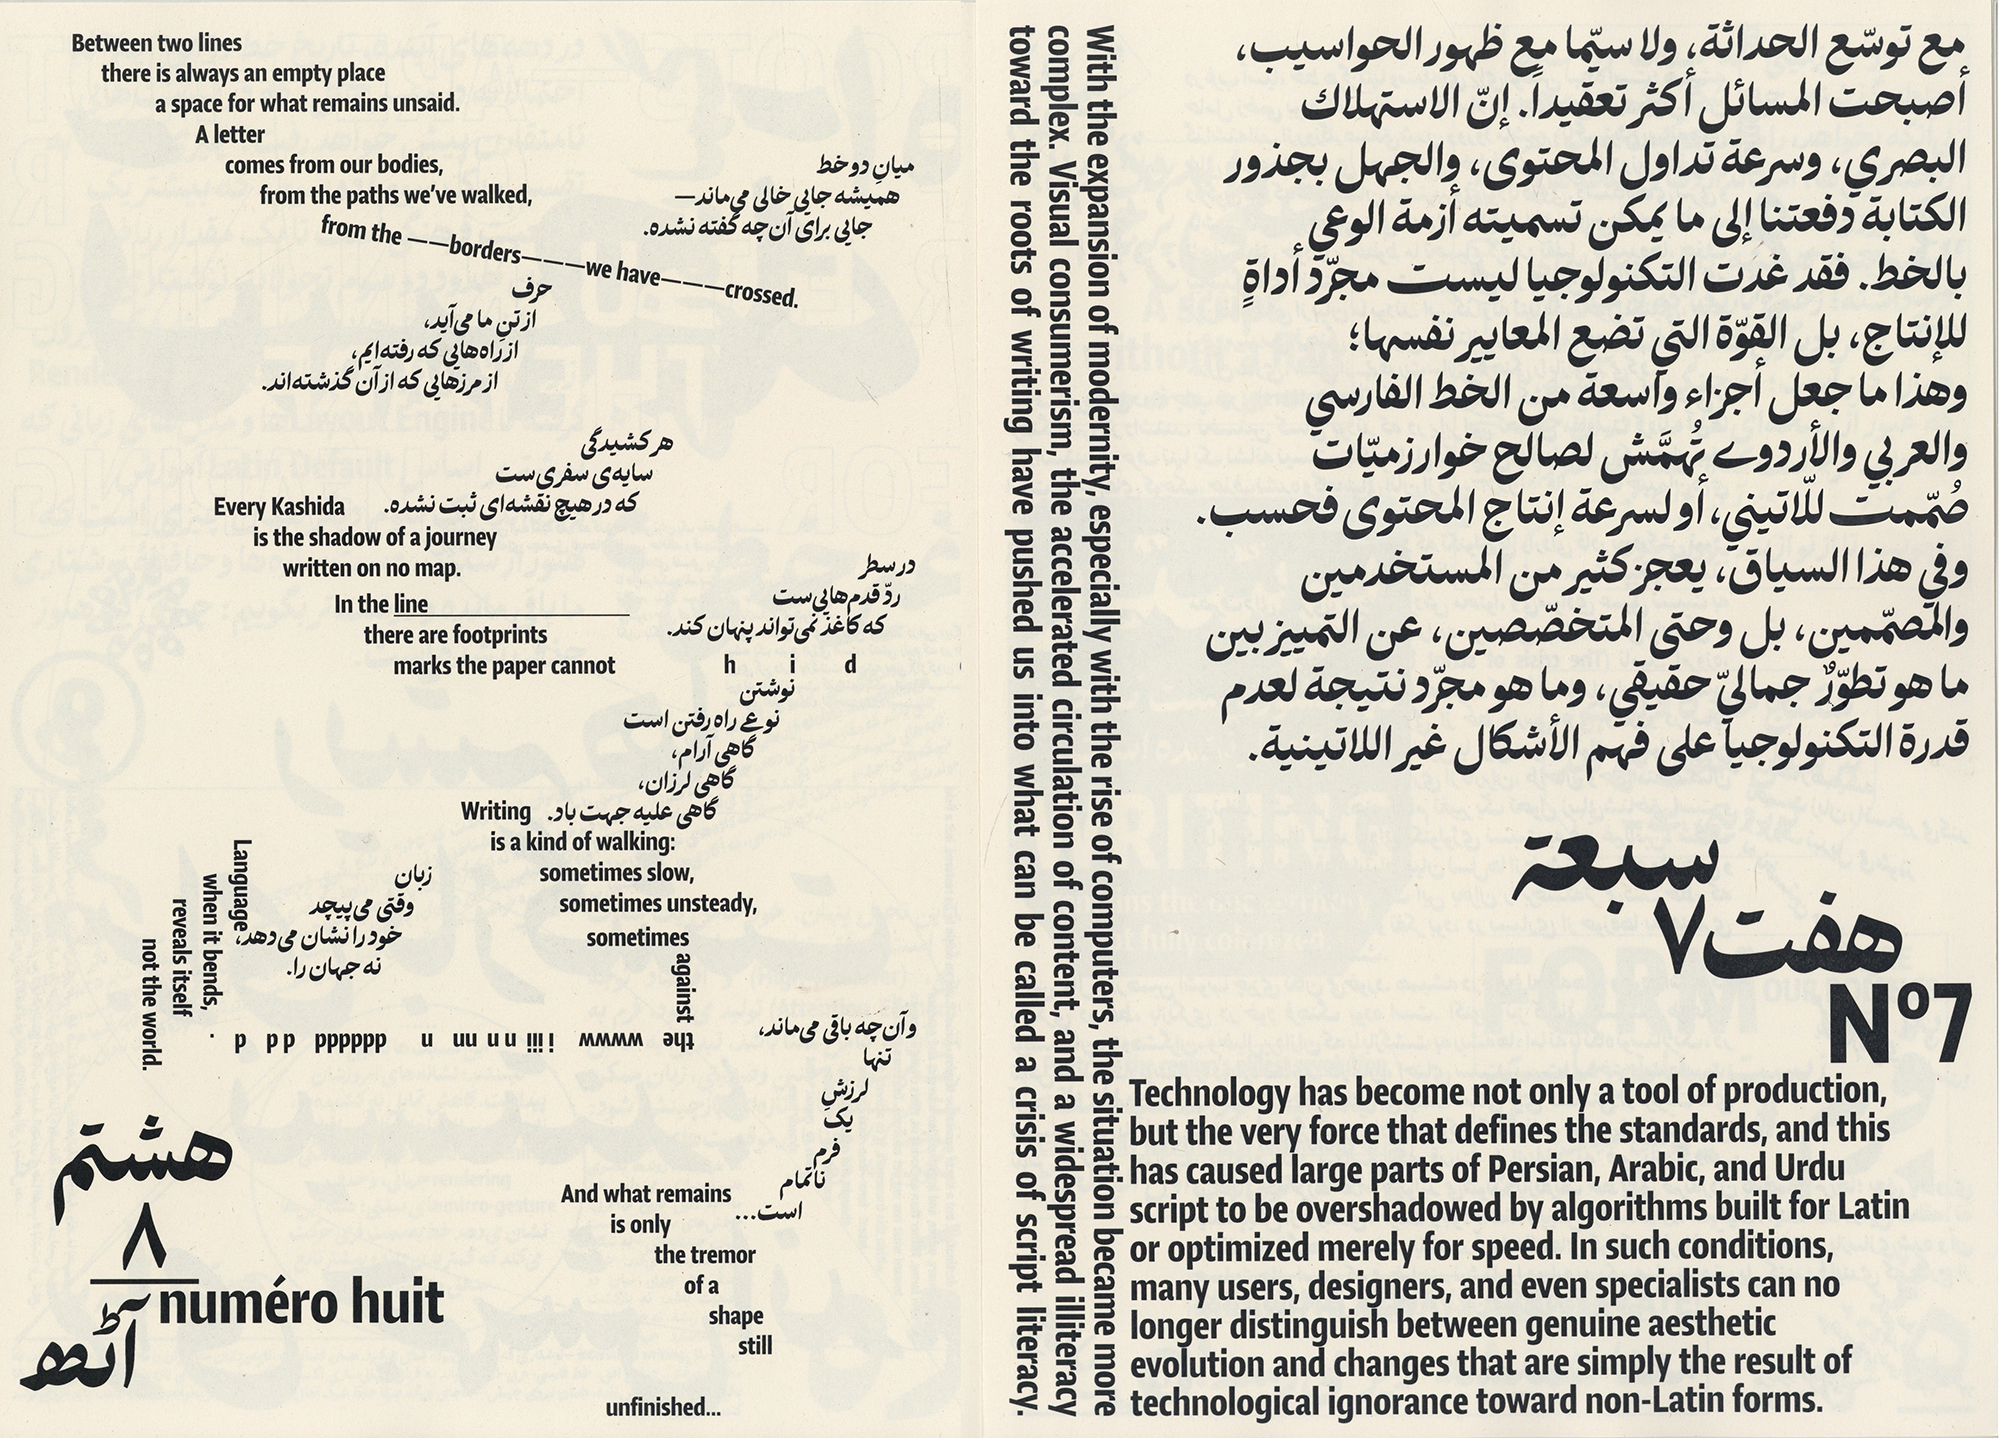 Between two lines
there is always an empty place
a space for what remains unsaid.
A letter
comes from our bodies,
from the paths we've walked,
from the ——borders———we have———crossed.
میانِ دو خط
همیشه جایی خالی می‌ماند—
جایی برای آن‌چه گفته نشده.
حرف
از تنِ ما می‌آید،
از راه‌هایی که رفته‌ایم،
از مرزهایی که از آن گذشته‌اند.
هر کشیدگی
سایه‌ی سفری‌ست
که در هیچ نقشه‌ای ثبت نشده.
Every Kashida
is the shadow of a journey
written on no map.
در سطر
ردّ قدم‌هایی‌ست
که کاغذ نمی‌تواند پنهان کند.
In the line
there are footprints
marks the paper cannot h i d
نوشتن
نوعی راه رفتن است
گاهی آرام،
گاهی لرزان،
گاهی علیه جهت باد.
Writing
is a kind of walking:
sometimes slow,
sometimes unsteady,
sometimes
against
the wwww iiii n n nn n dddddd d d d .
زبان
وقتی می‌پیچد
خود را نشان می‌دهد،
نه جهان را.
Language,
when it bends,
reveals itself
not the world.
و آن‌چه باقی می‌ماند،
تنها
لرزشِ
یک
فرم
ناتمام
است...
And what remains
is only
the tremor
of a
shape
still
unfinished...
هشتم
۸
numéro huit
آٹھ
مع توسّع الحداثة، ولا سيّما مع ظهور الحواسيب،
أصبحت المسائل أكثر تعقيداً. إنّ الاستهلاك
البصري، وسرعة تداول المحتوى، والجهل بجذور
الكتابة دفعتنا إلى ما يمكن تسميته أزمة الوعي
بالخط. فقد غدت التكنولوجيا ليست مجرّد أداةٍ
للإنتاج، بل القوّة التي تضع المعايير نفسها؛
وهذا ما جعل أجزاء واسعة من الخط الفارسي
والعربي والأردوے تُهمَّش لصالح خوارزميّات
صُمّمت للّاتيني، أو لسرعة إنتاج المحتوى فحسب.
وفي هذا السياق، يعجز كثير من المستخدمين
والمصمّمين، بل وحتى المتخصّصين، عن التمييز بين
ما هو تطوّرٌ جماليّ حقيقي، وما هو مجرّد نتيجة لعدم
قدرة التكنولوجيا على فهم الأشكال غير اللاتينية.
سبعة
هفت ۷
Nº7
With the expansion of modernity, especially with the rise of computers, the situation became more
complex. Visual consumerism, the accelerated circulation of content, and a widespread illiteracy
toward the roots of writing have pushed us into what can be called a crisis of script literacy.
Technology has become not only a tool of production,
but the very force that defines the standards, and this
has caused large parts of Persian, Arabic, and Urdu
script to be overshadowed by algorithms built for Latin
or optimized merely for speed. In such conditions,
many users, designers, and even specialists can no
longer distinguish between genuine aesthetic
evolution and changes that are simply the result of
technological ignorance toward non-Latin forms.